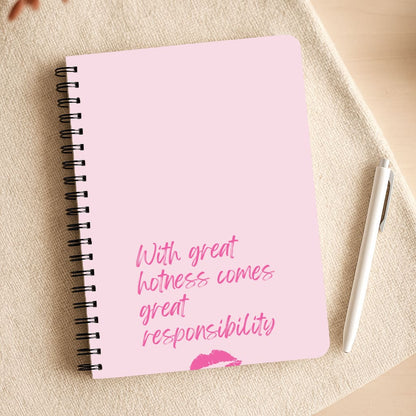 With great
hotness comes
great
responsibility